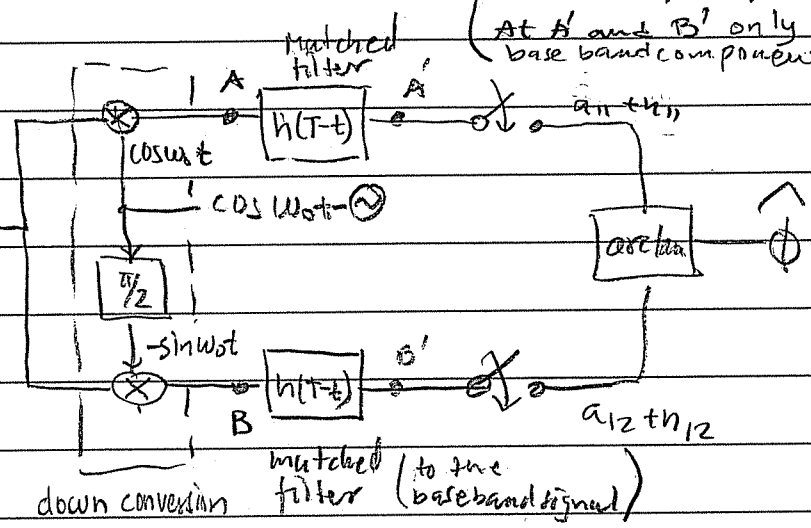 (At A' and B' only
base band component
Matched
filter
A
A'
h(T-t)
a₁₁ + n₁₁
cosω₀t
cos ω₀t
π/2
arctan
φ̂
-sinω₀t
B'
h(T-t)
B
a₁₂ + n₁₂
matched
filter
(to the
baseband signal)
down conversion